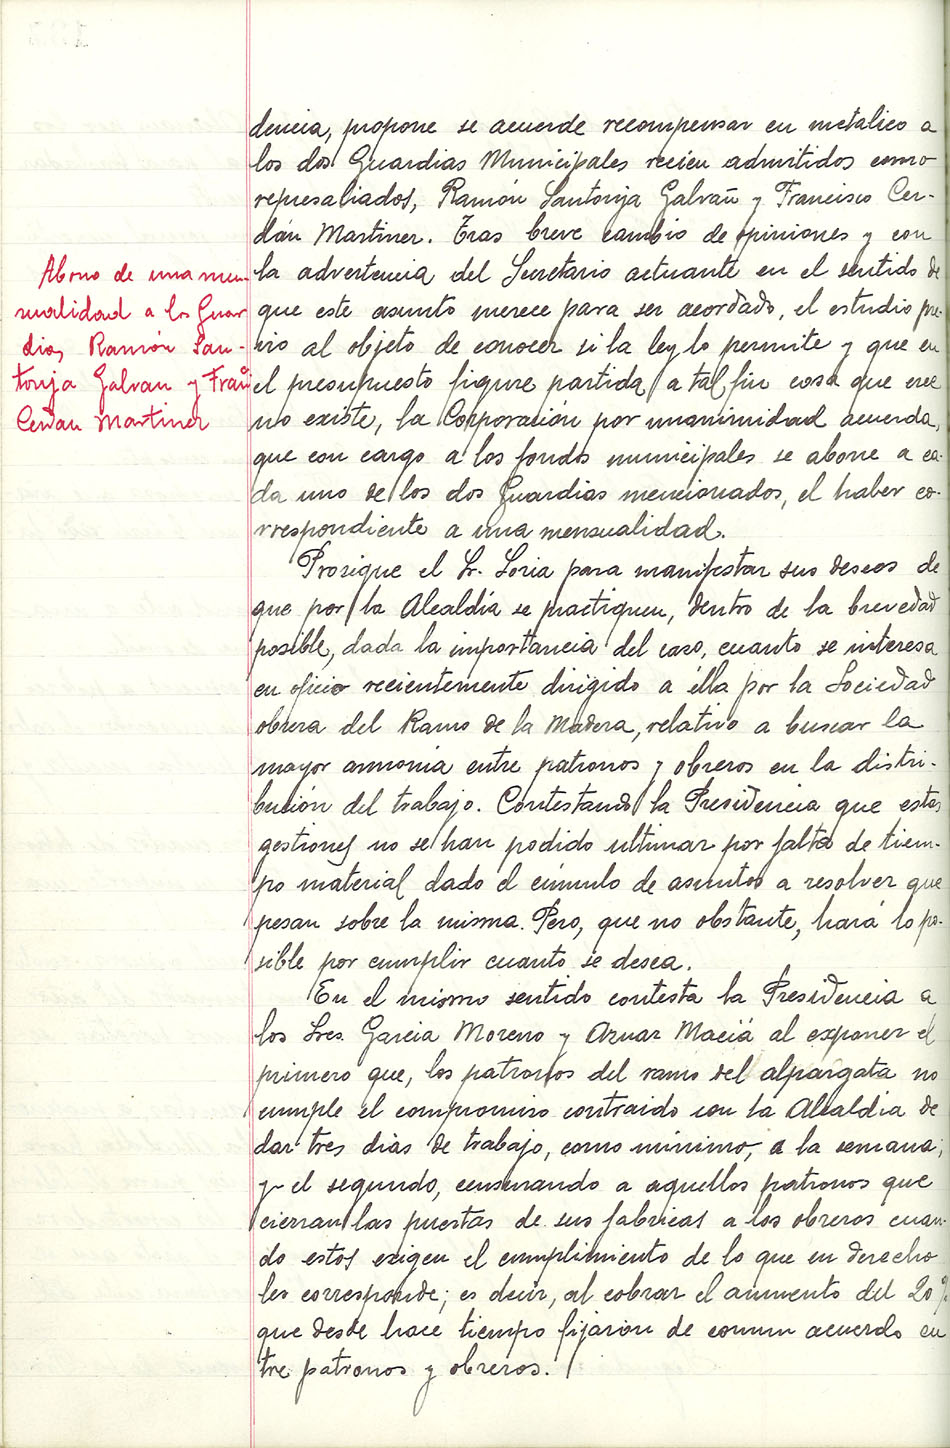 dencia, propone se acuerde recompensar en metalico a
los dos Guardias Municipales recien admitidos como
represaliados, Ramón Santonja Galvañ y Francisco Cer-
dán Martinez. Tras breve cambio de opiniones y con
la advertencia del Secretario actuante en el sentido de
que este asunto merece para ser acordado, el estudio pre-
vio al objeto de conocer si la ley lo permite y que en
el presupuesto figure partida a tal fin cosa que cree
no existe, la Corporación por unanimidad acuerda,
que con cargo a los fondos municipales se abone a ca-
da uno de los dos Guardias mencionados, el haber co-
rrespondiente a una mensualidad.
Abono de una men-
sualidad a los Guar
dias Ramón San-
tonja Galvan y Franco
Cerdan Martinez
Prosigue el Sr. Soria para manifestar sus deseos de
que por la Alcaldía se practiquen, dentro de la brevedad
posible, dada la importancia del caso, cuanto se interesa
en oficio recientemente dirigido a élla por la Sociedad
obrera del Ramo de la Madera, relativo a buscar la
mayor armonía entre patronos y obreros en la distri-
bución del trabajo. Contestando la Presidencia que estas
gestiones no se han podido ultimar por falta de tiem-
po material dado el cúmulo de asuntos a resolver que
pesan sobre la misma. Pero, que no obstante, hará lo po-
sible por cumplir cuanto se desea.
En el mismo sentido contesta la Presidencia a
los Sres. Garcia Moreno y Aznar Maciá al exponer el
primero que, los patronos del ramo del alpargata no
cumple el compromiso contraido con la Alcaldía de
dar tres dias de trabajo, como mínimo, a la semana;
y el segundo, censurando a aquellos patronos que
cierran las puertas de sus fabricas a los obreros cuan-
do estos exigen el cumplimiento de lo que en derecho
les corresponde; es decir, al cobrar el aumento del 20%
que desde hace tiempo fijarón de comun acuerdo en
tre patronos y obreros.